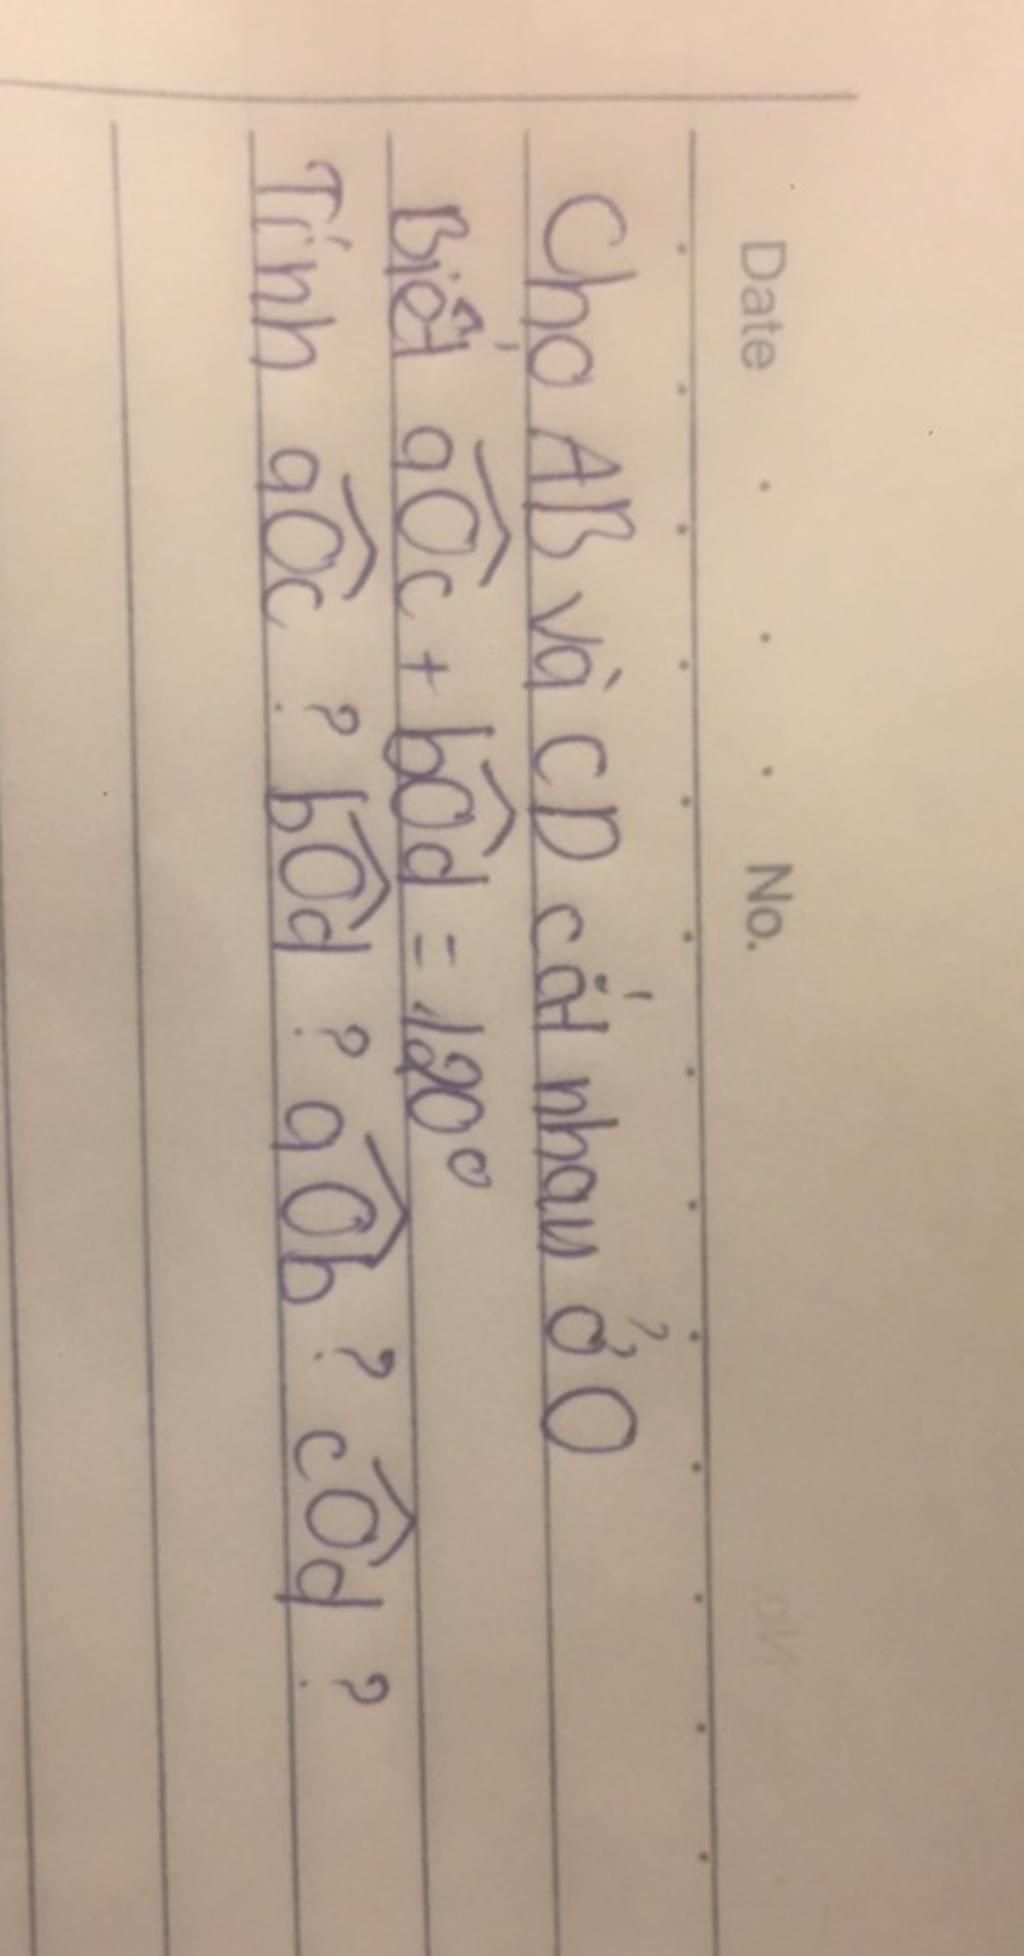 Date No.
Cho AB và CD cắt nhau ở O
Biết aÔc + bÔd = 120°
Tính aÔc ? bÔd ? aÔb ? cÔd ?